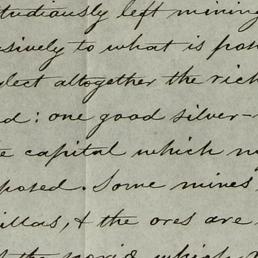 tudiously left mining
usively to what is
glect altogether the rich
d: one good silver-
e capital which
posed. Some mines
illas, & the ores are
the